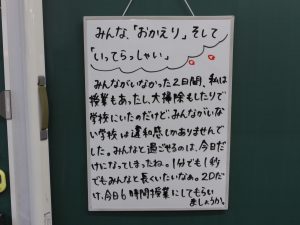 みんな、「おかえり」そして
「いってらっしゃい」
みんながいなかった2日間、私は
授業もあったし、大掃除もしたりで
学校にいたのだけど、みんながいな
い学校は違和感しかありませんで
した。みんなと過ごせるのは、今日だ
けになってしまったね。1分でも1秒
でもみんなと長くいたいなぁ。2Dだ
け、今日6時間授業にしてもらい
ましょうか。